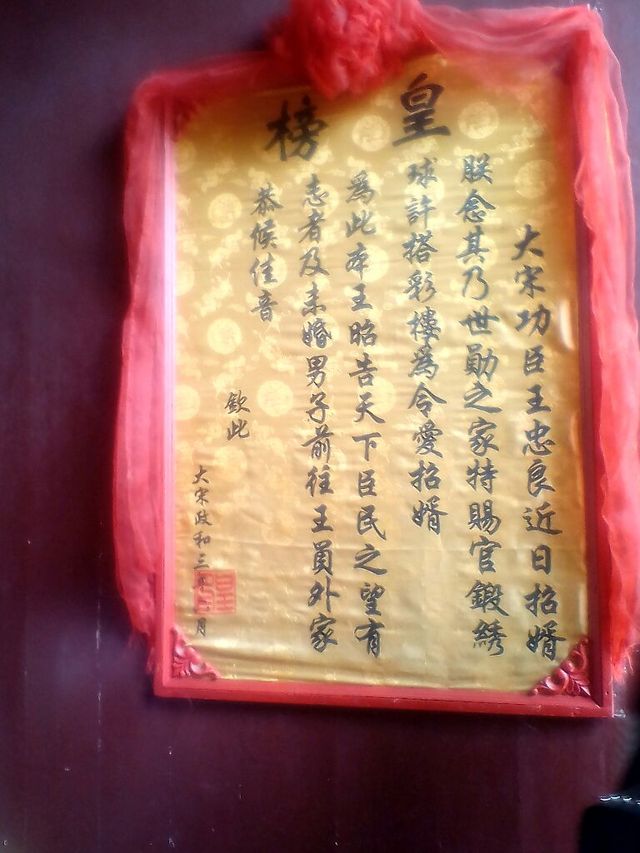 皇榜
大宋功臣王忠良近日招婿
朕念其乃世勋之家特赐官鍛綉
球許搭彩樓為令愛招婿
為此本王昭告天下臣民之望有
志者及未婚男子前往王員外家
恭候佳音
欽此
大宋政和三年 月